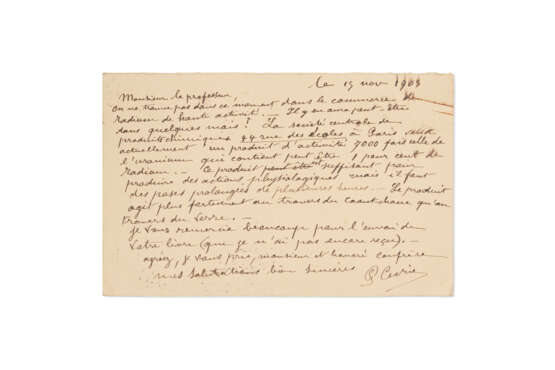 le 15 nov 1903
Monsieur le professeur,
on ne trouve pas dans ce moment dans le commerce de
radium de haute activité. — Il y en aura peut-être
dans quelques mois? La société centrale de
produits chimiques 44 rue des écoles à Paris vend
actuellement un produit d'activité 7000 fois celle de
l'uranium qui contient peut être 1 pour cent de
radium. — Ce produit peut être suffisant pour
produire des actions physiologiques mais il faut
des poses prolongées de plusieurs heures. — Le produit
agit plus fortement au travers du caoutchouc qu'au
travers du verre. —
Je vous remercie beaucoup pour l'envoi de
votre livre (que je n'ai pas encore reçu). —
agréez, je vous prie, monsieur et honoré confrère
mes salutations bien sincères
P Curie